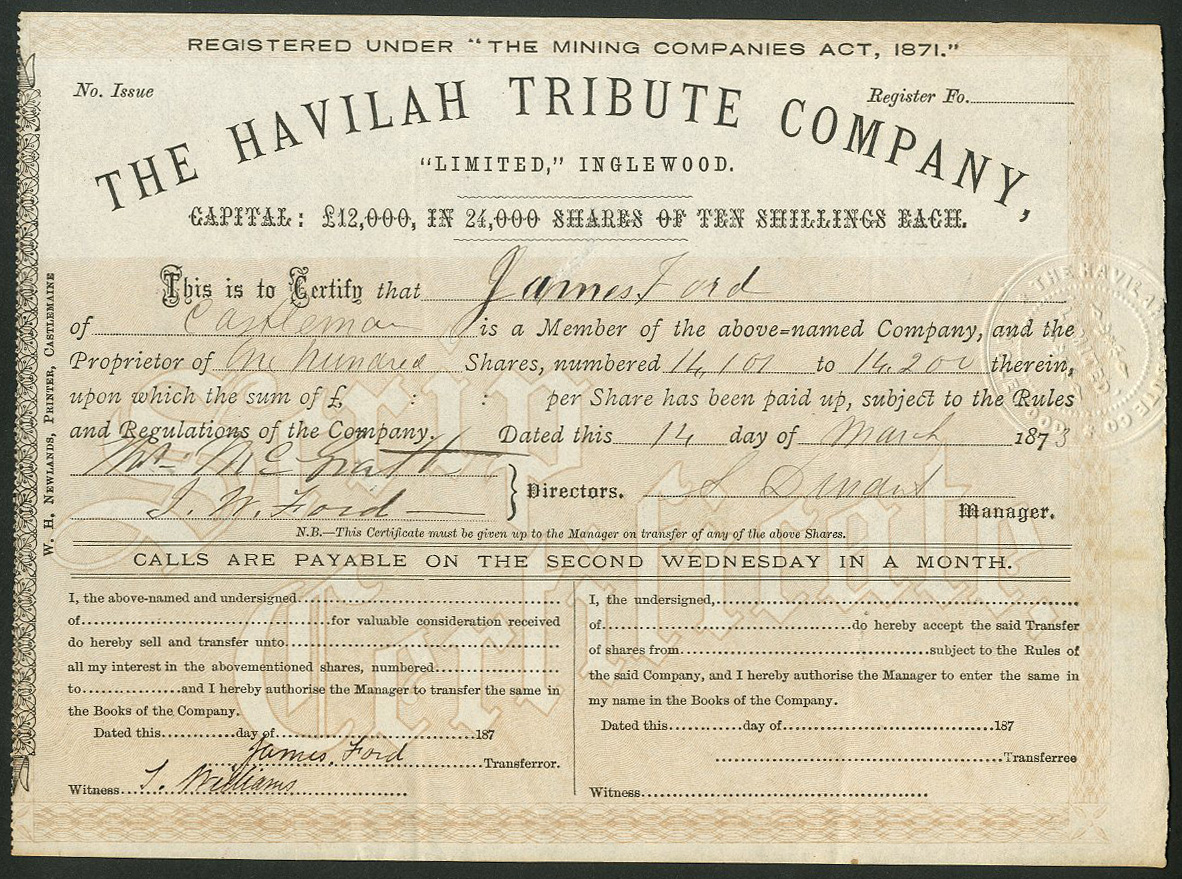 REGISTERED UNDER "THE MINING COMPANIES ACT, 1871."
No. Issue
Register Fo.
THE HAVILAH TRIBUTE COMPANY,
"LIMITED," INGLEWOOD.
CAPITAL: £12,000, IN 24,000 SHARES OF TEN SHILLINGS EACH.
This is to Certify that James Ford
of Castlemaine is a Member of the above=named Company, and the
Proprietor of One hundred Shares, numbered 14,101 to 14,200 therein,
upon which the sum of £ : : per Share has been paid up, subject to the Rules
and Regulations of the Company. Dated this 14 day of March 1873
Wm McGrath
J. W. Ford
Directors.
Manager.
N.B.—This Certificate must be given up to the Manager on transfer of any of the above Shares.
CALLS ARE PAYABLE ON THE SECOND WEDNESDAY IN A MONTH.
I, the above-named and undersigned
of for valuable consideration received
do hereby sell and transfer unto
all my interest in the abovementioned shares, numbered
to and I hereby authorise the Manager to transfer the same in
the Books of the Company.
Dated this day of 187
James Ford Transferror.
Witness J. Williams
I, the undersigned,
of do hereby accept the said Transfer
of shares from subject to the Rules of
the said Company, and I hereby authorise the Manager to enter the same in
my name in the Books of the Company.
Dated this day of 187
Transferree
Witness
W. H. NEWLANDS, PRINTER, CASTLEMAINE
Scrip
Certificate
THE HAVILAH TRIBUTE CO